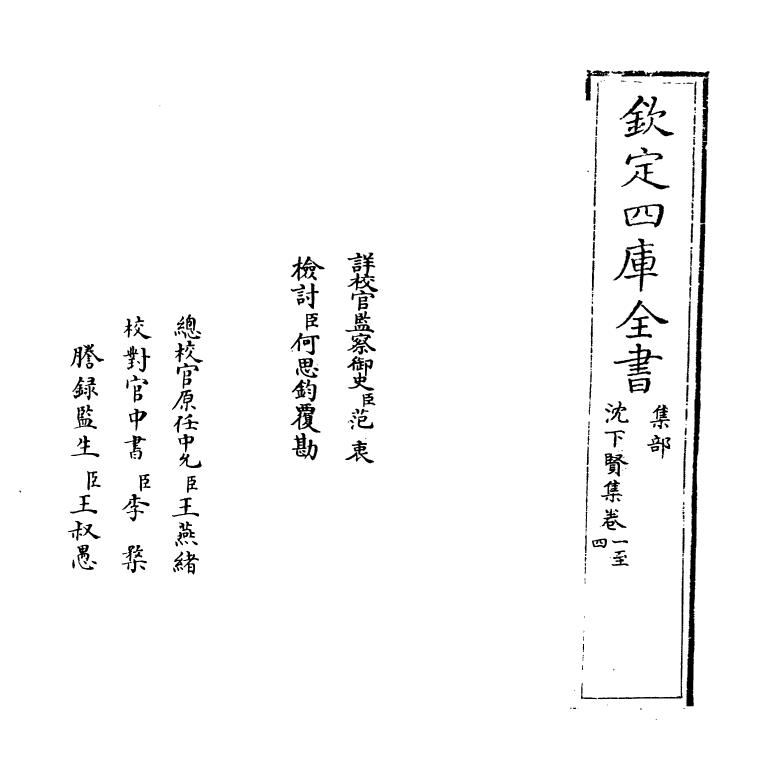 欽定四庫全書
集部
沈下賢集卷一至四
詳校官監察御史臣范衷
檢討臣何思鈞覆勘
總校官原任中允臣王燕緒
校對官中書臣李楘
謄録監生臣王叔愚